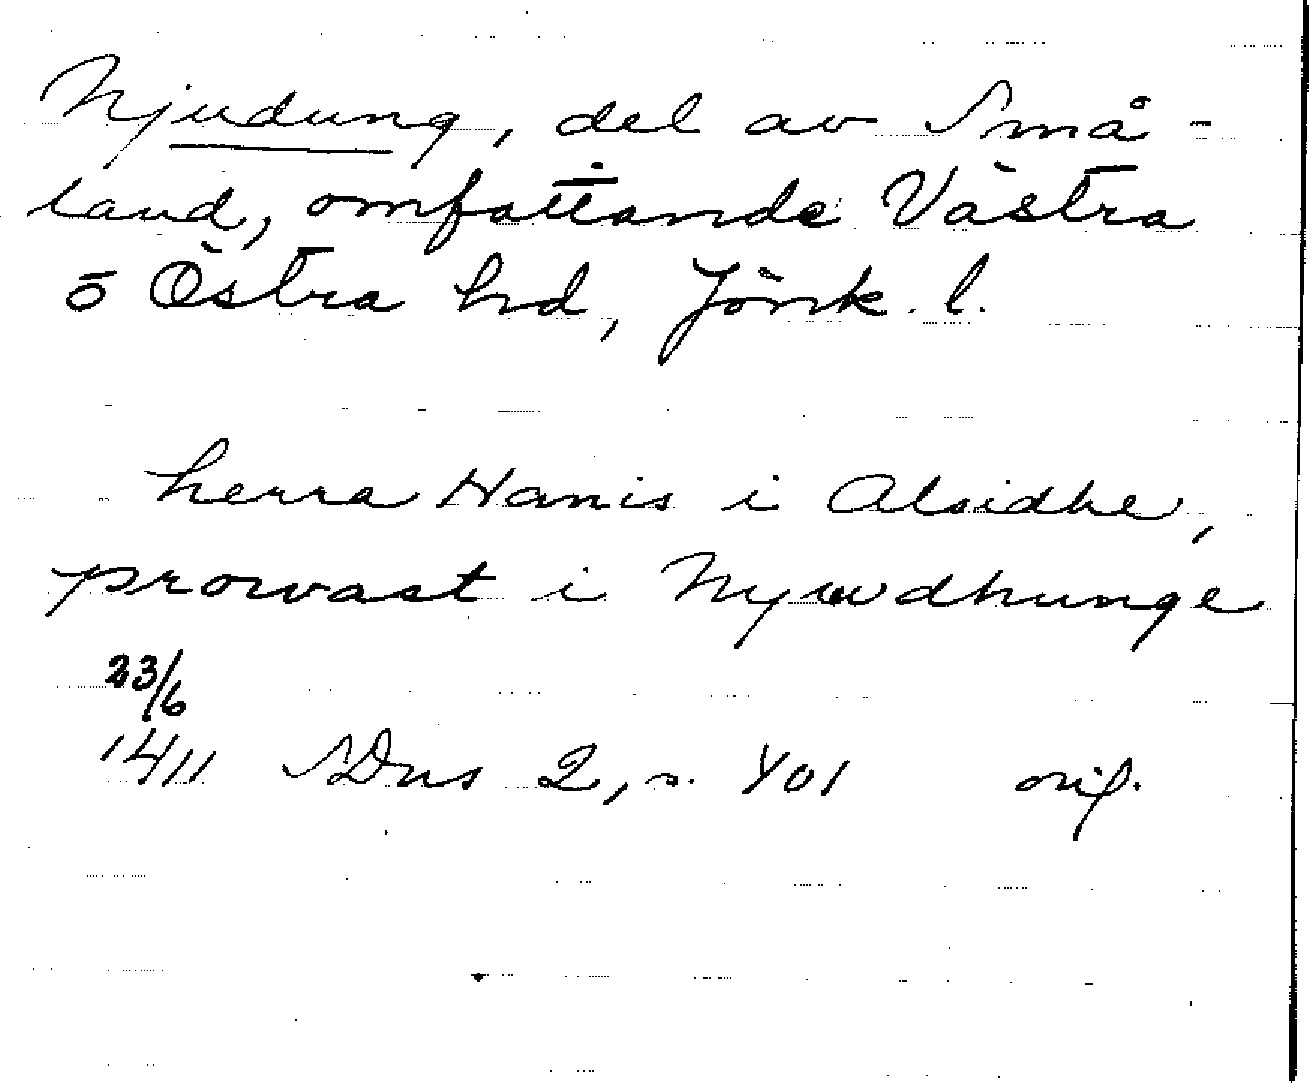 Njudung, del av Små-
land, omfattande Västra
o Östra hd, Jönk. l.
herra Hanis i Alsidhe,
prowast i Nywdhunge
23/6
1411 SDns 2, s. 401 orig.